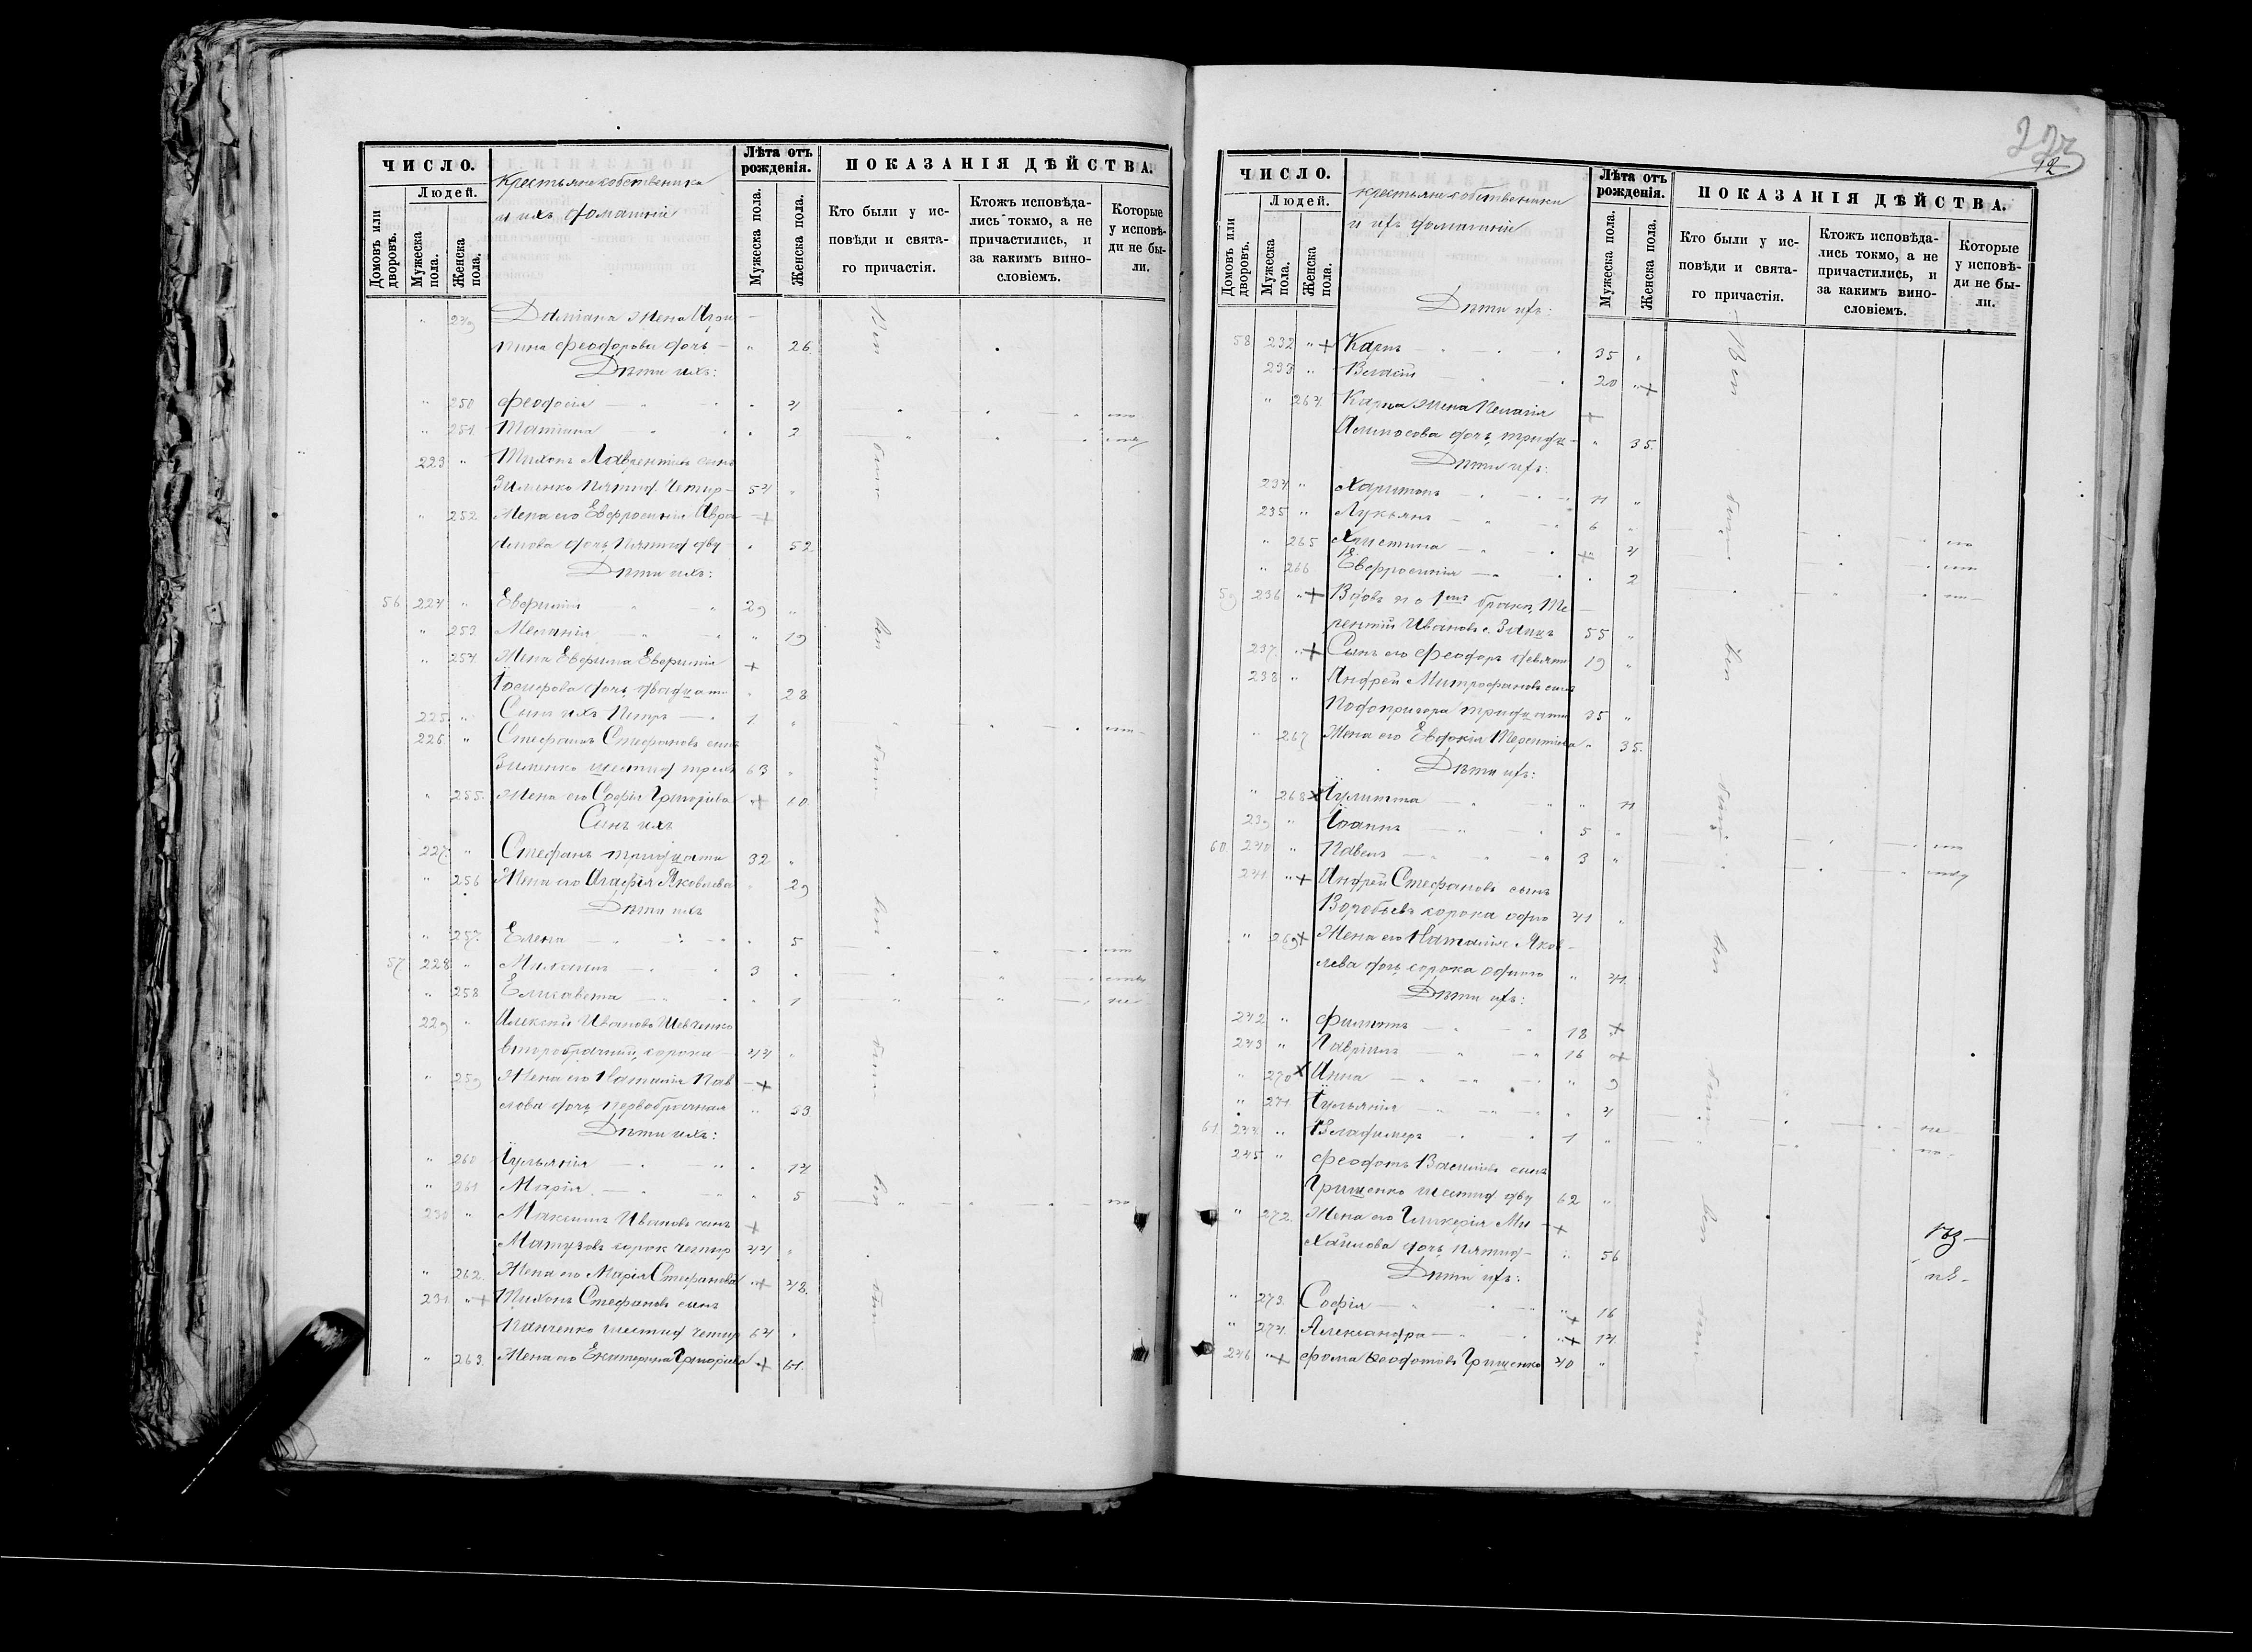 ЧИСЛО.
Людей.
Домовъ или дворовъ.
Мужеска пола.
Женска пола.
Крестьяне собственики
и ихъ домашнiи
Лѣта отъ рожденія.
Мужеска пола.
Женска пола.
ПОКАЗАНІЯ ДѢЙСТВА.
Кто были у исповѣди и святаго причастія.
Ктожъ исповѣдались токмо, а не причастились, и за какимъ винословіемъ.
Которые у исповѣди не были.
Даміана жена
Феодорова дочь 26
Дѣти ихъ:
250 Феодосія 4
251 Татіана 2
223 Тихонъ Лаврентіевъ сынъ
Зименко пятид. четыр 54
252 Жена его Евфросинія
дочь пятид дву 52
Дѣти ихъ:
56 224 Евфимій 29
253 Меланія 19
254 Жена Евфима Евфимія
Іосифова дочь двадцати 28
225 Сынъ ихъ Петръ 1
226 Стефанъ Стефановъ сынъ
Зименко шестид трехъ 63
255 Жена его Софія Григоріева
Сынъ ихъ
227 Стефанъ тридцати 32
256 Жена его Агафія Яковлева 29
Дѣти ихъ
257 Елена 5
57 228 3
258 Елисавета 1
229 Алексѣй Ивановъ Шевченко
второбрачный, сорока 44
259 Жена его Наталія Пав
лова дочь первобрачная 53
Дѣти ихъ:
260 Іуліанія 14
261 Марія 5
230 Максимъ Ивановъ сынъ
сорок четыр 44
262 Жена его Марія Стефанова 48
231 Тихонъ Стефановъ сынъ
Панченко шестид четыр 64
263 Жена его Екатерина Григоріева 61
12
ЧИСЛО.
Людей.
Домовъ или дворовъ.
Мужеска пола.
Женска пола.
крестьяне собственики
и ихъ домашніи
Лѣта отъ рожденія.
Мужеска пола.
Женска пола.
ПОКАЗАНІЯ ДѢЙСТВА.
Кто были у исповѣди и святаго причастія.
Ктожъ исповѣдались токмо, а не причастились, и за какимъ винословіемъ.
Которые у исповѣди не были.
Дѣти ихъ:
58 232 Карпъ 35
233 Власій 20
264 Карпа жена Пелагія
дочь тридц 35
Дѣти ихъ:
234 Харитонъ 11
235 Лукьянъ 6
265 Христина 4
266 Евфросинія 2
59 236 Вдовъ по 1мъ бракѣ Те
рентій Ивановъ 55
237 Сынъ его Феодоръ девятн 19
238 Андрей Митрофановъ сынъ
Подопригора тридцати 35
267 Жена его Евдокія Терентіева 35
Дѣти ихъ:
268 Іулитта 11
239 Іоаннъ 5
60 240 Павелъ 3
241 Андрей Стефановъ сынъ
Воробьевъ сорока одно 41
269 Жена его Наталія Яков
лева дочь сорока одного 41
Дѣти ихъ:
242 Филиппъ 18
243 Гавріилъ 16
270 Анна 9
271 Іульянія 4
61 244 Владимиръ 1
245 Феодотъ Василіевъ сынъ
Грищенко шестид дву 62
272 Жена его Гликерія Ми
хайлова дочь пятид 56
Дѣти ихъ:
273 Софія 16
274 Александра 14
246 Фома Феодотовъ Грищенко 40